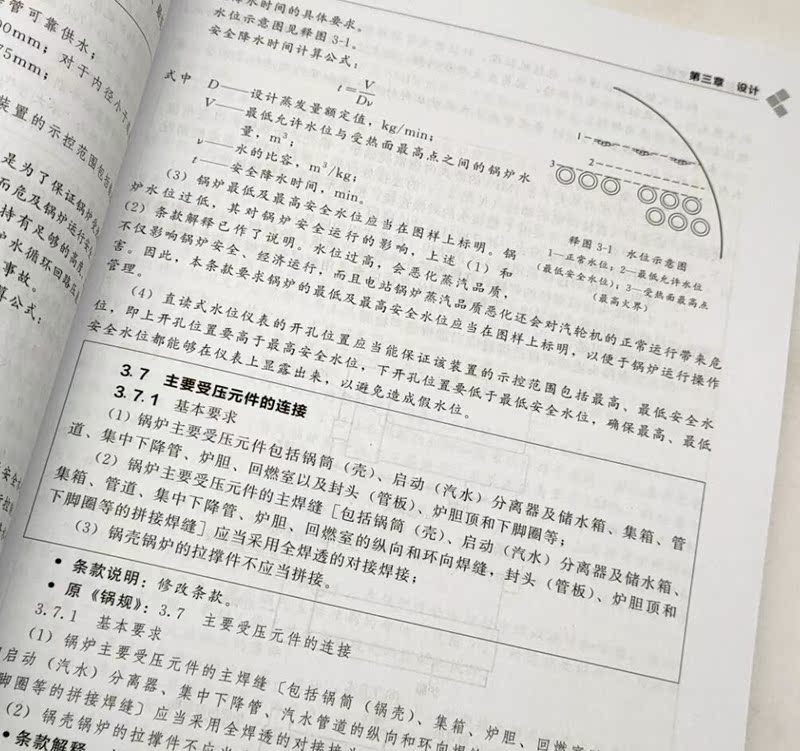 管可靠供水；
00mm；对于内径小于
75mm；
装置的示控范围包括
是为了保证锅炉
而危及锅炉运行安
持有足够的高度
水循环回路
事故。
算公式：
第三章 设计
降水时间的具体要求。
水位示意图见释图3-1。
安全降水时间计算公式：
t=V/Dν
式中 D——设计蒸发量额定值，kg/min；
V——最低允许水位与受热面最高点之间的锅炉水
量，m³；
ν——水的比容，m³/kg；
t——安全降水时间，min。
（3）锅炉最低及最高安全水位应当在图样上标明。锅
炉水位过低，其对锅炉安全运行的影响，上述（1）和
（2）条款解释已作了说明。水位过高，会恶化蒸汽品质，
不仅影响锅炉安全、经济运行，而且电站锅炉蒸汽品质恶化还会对汽轮机的正常运行带来危
害。因此，本条款要求锅炉的最低及最高安全水位应当在图样上标明，以便于锅炉运行操作
管理。
1
2
3
释图3-1 水位示意图
1—正常水位；2—最低允许水位
（最低安全水位）；3—受热面最高点
（最高火界）
（4）直读式水位仪表的开孔位置应当能保证该装置的示控范围包括最高、最低安全水
位，即上开孔位置要高于最高安全水位，下开孔位置要低于最低安全水位，确保最高、最低
安全水位都能够在仪表上显露出来，以避免造成假水位。
3.7 主要受压元件的连接
3.7.1 基本要求
（1）锅炉主要受压元件包括锅筒（壳）、启动（汽水）分离器及储水箱、集箱、管
道、集中下降管、炉胆、回燃室以及封头（管板）、炉胆顶和下脚圈等；
（2）锅炉主要受压元件的主焊缝［包括锅筒（壳）、启动（汽水）分离器及储水箱、
集箱、管道、集中下降管、炉胆、回燃室的纵向和环向焊缝，封头（管板）、炉胆顶和
下脚圈等的拼接焊缝］应当采用全焊透的对接焊接；
（3）锅壳锅炉的拉撑件不应当拼接。
• 条款说明：修改条款。
• 原《锅规》：3.7 主要受压元件的连接
3.7.1 基本要求
（1）锅炉主要受压元件的主焊缝［包括锅筒（锅壳）、集箱、炉胆、回燃室
启动（汽水）分离器、集中下降管、汽水管道的纵向和环向焊
脚圈等的拼接焊缝］应当采用全焊透的对接接头
（2）锅壳锅炉的拉撑件不应当
• 条款解释